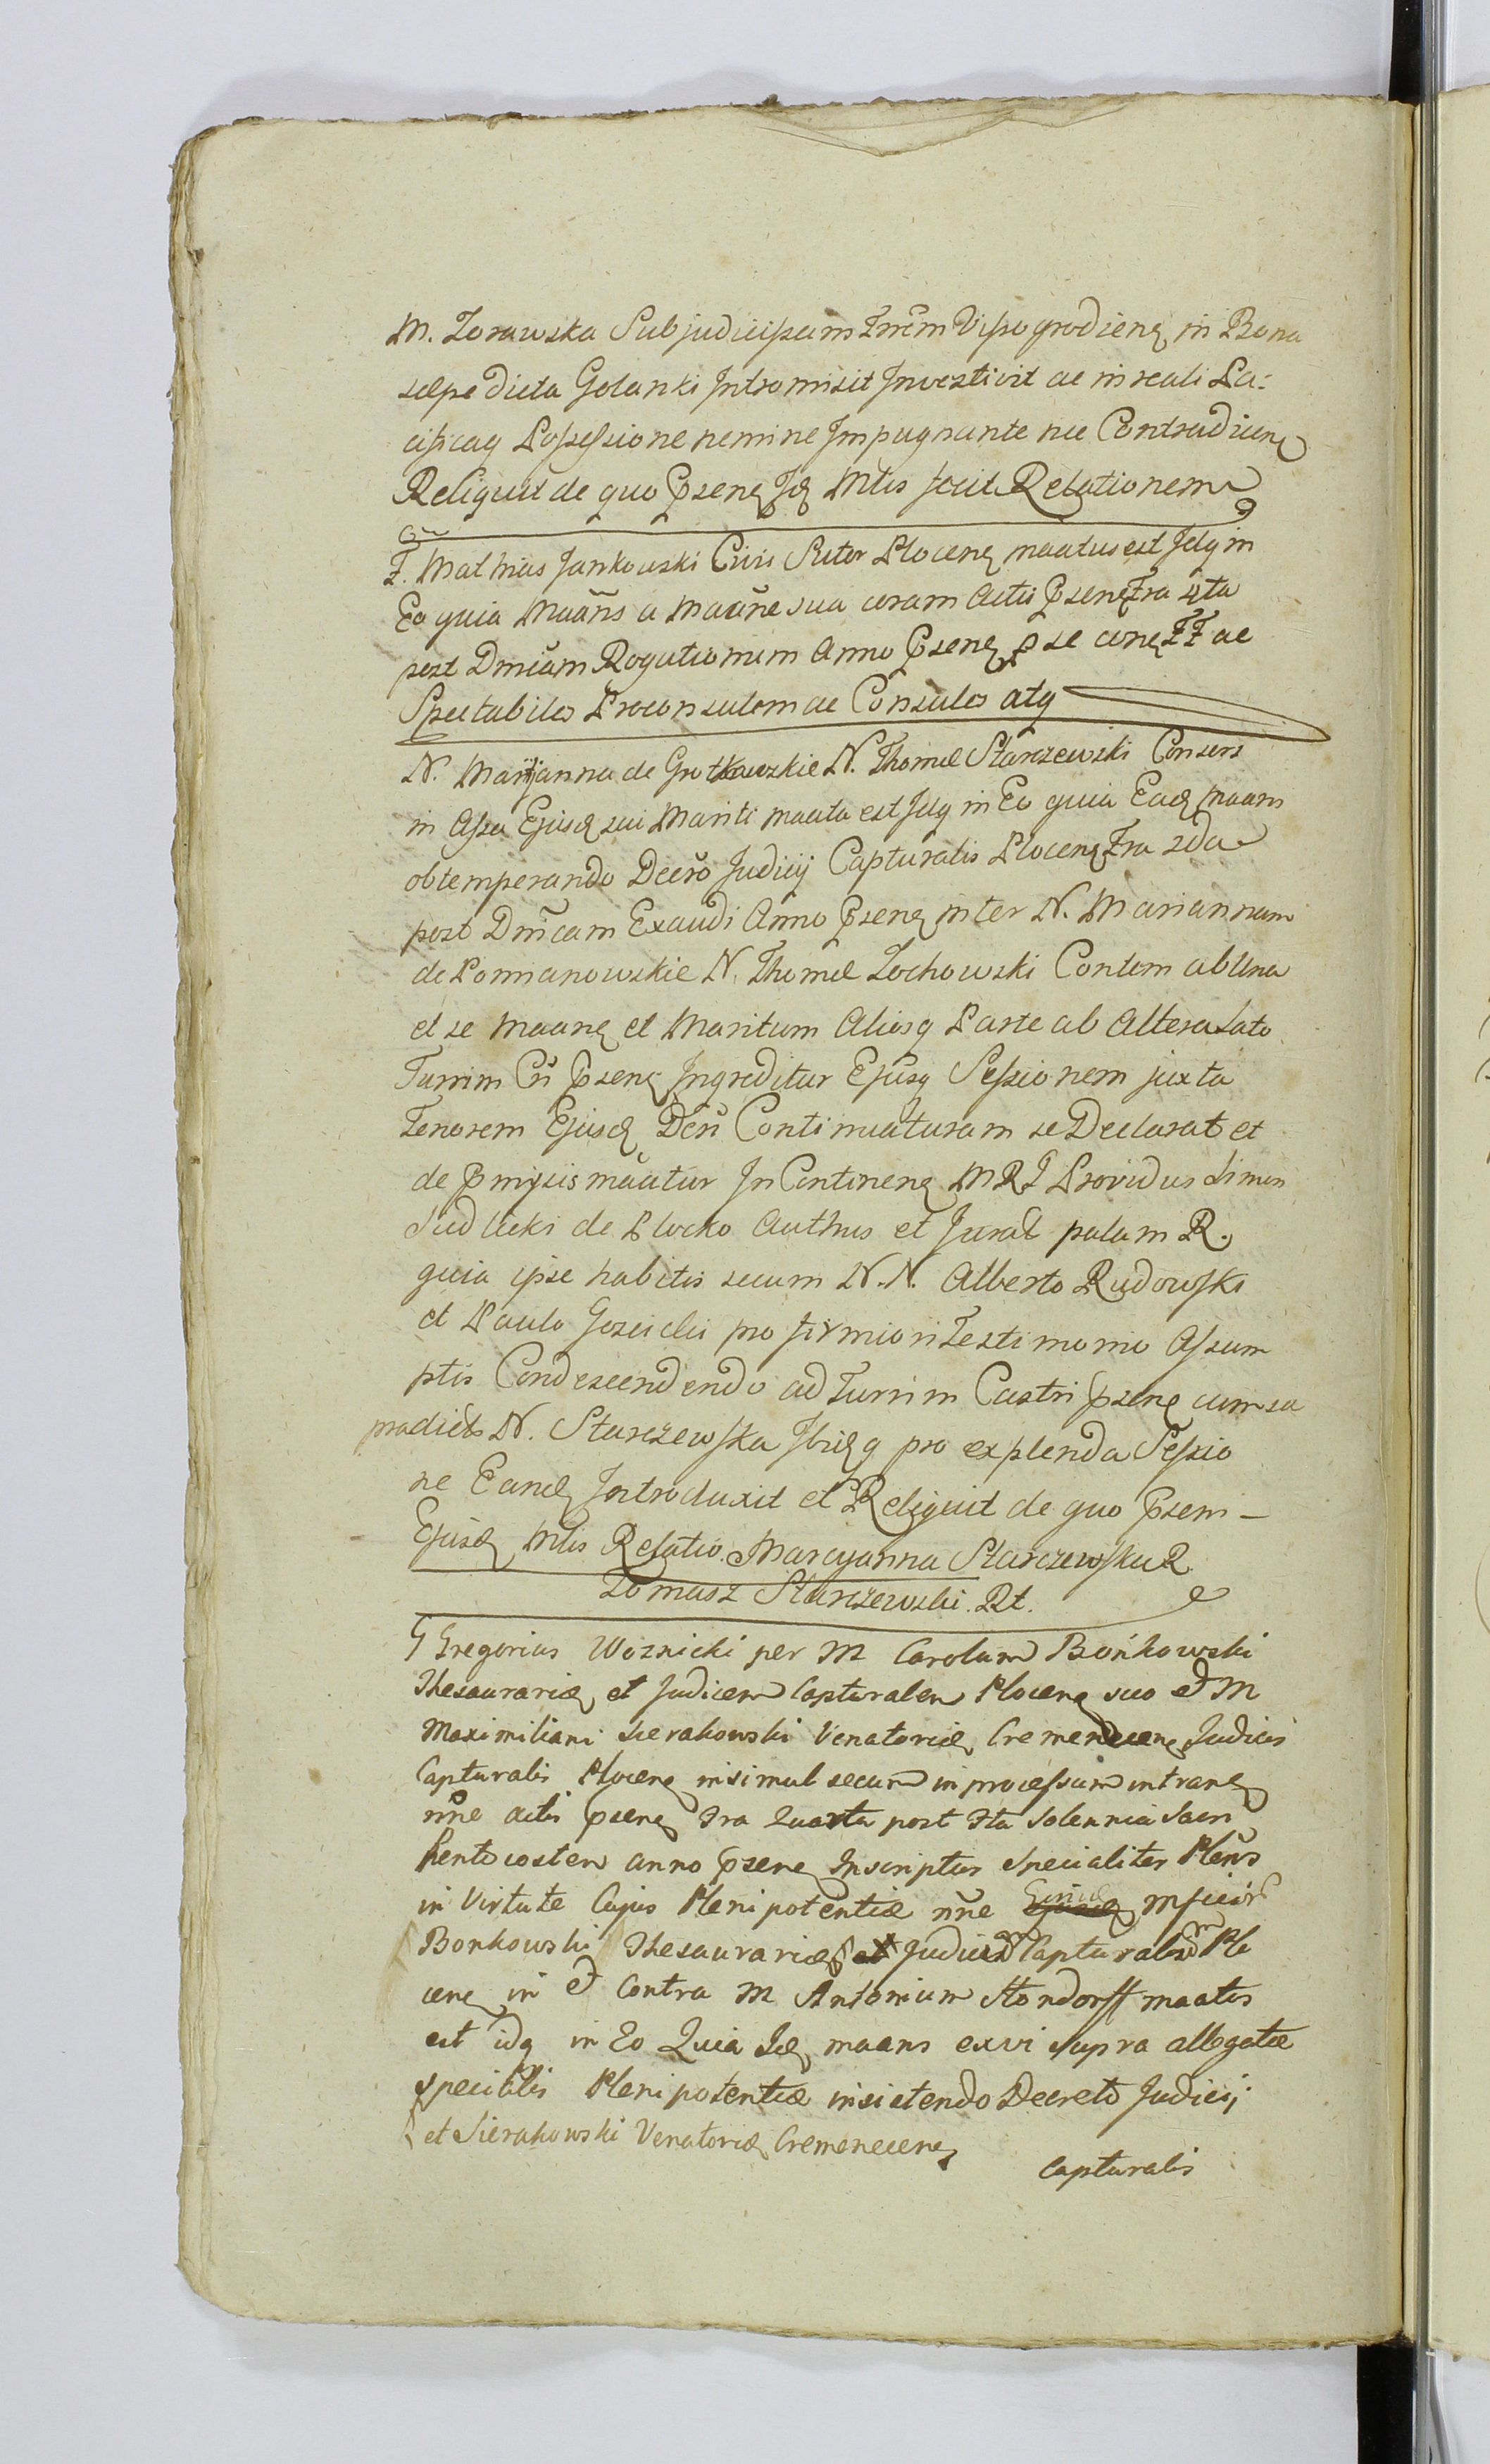 M. Zorawska Subjudicissam Trrem Vissogrodieng in Bona
selpe dicta Golanki Intromisit Investivit ac in reali Pa:
cificaq Possessione nemine Impugnante nec Contradiceng
Reliquit de quo Pseng Jd Mlis fecit Relationem
F. Mathias Jankowski Civis Sutor Ploceng maatus est Idq in
Eo quia Maans a Maane sua coram Actis Pseng Fra 4ta
post Dmcam Rogationum Anno Pseng p se cong FF ac
Spectabiles Proconsulem ac Consules atq
N. Maryanna de Grotkowskie N. Thomae Starczewski Consors
in Assa Ejusd sui Mariti maata est Idq in Eo quia Ead Maans
obtemperando Decro Judicij Capturalis Ploceng Fra 2da
post Dmcam Exaudi Anno Pseng inter N. Mariannam
de Pomianowskie N. Thomae Zochowski Contem ab Una
et se Maang et Maritum Aliosq Parte ab Altera Lato
Turrim Cri Pseng Ingreditur Ejusq Sessionem juxta
Tenorem Ejusd Dcri Continuaturam se Declarat et
de Pmissis maatur In Contineng MRG Providus Simon
Sudlicki de Plocko Authus et Jurat palam R.
quia ipse habitis secum N.N. Alberto Rudowski
et Paulo Goscicki pro firmiori Testimonio Assum
ptis Condescendendo ad Turrim Castri Pseng cum ea
pradicta N. Starczewska Ibidq pro explenda Sessio
ne Eand Introduxit et Reliquit de quo Pseni -
Ejusd Mlis Relatio. Maryanna Starczewska R
Tomasz Starczewski. Rt.
G Gregorius Woznicki per M Carolum Bońkowski
Thesaurarid et Judicem Capturalem Ploceng suo et M
Maximiliani Sierakowski Venatorid Cremeneceng Judicis
Capturalis Ploceng insimul secum in processum intrang
nne actis pseng Fra Quarta post Fta Solennia Sacri
Pentecosten anno pseng Inscriptus Specialiter Plens
in Virtute Cujus Plenipotentiæ nne Ejusd Mficor
Bonkowski Thesaurarid et Judicum Capturalium Plo
ceng in et Contra M Antonium Stondorff maatus
est idq in Eo Quia Jd maans ex vi supra allegatæ
specialis Plenipotentiæ insistendo Decreto Judicij
et Sierakowski Venatorid Cremeneceng
Capturalis